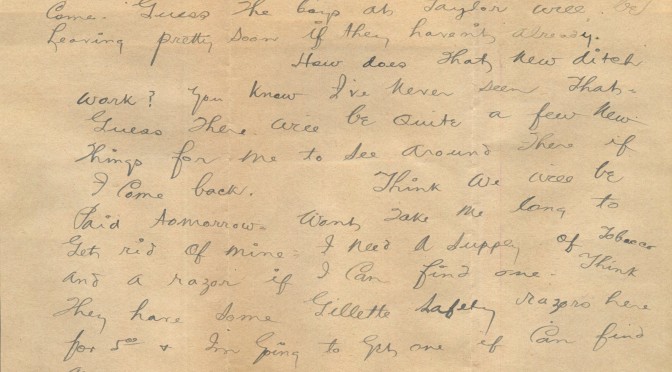 Come. Guess the boys at Taylor will be
leaving pretty soon if they havent already.
How does that new ditch
work? You know I've never seen that-
Guess there will be quite a few new
things for me to see around there if
I come back. Think we will be
paid tomorrow- Wont take me long to
get rid of mine- I need a supply of Tobacco
and a razor if I can find one- Think
they have some Gillette safety razors here
for 5.00 + I'm going to get one if can find